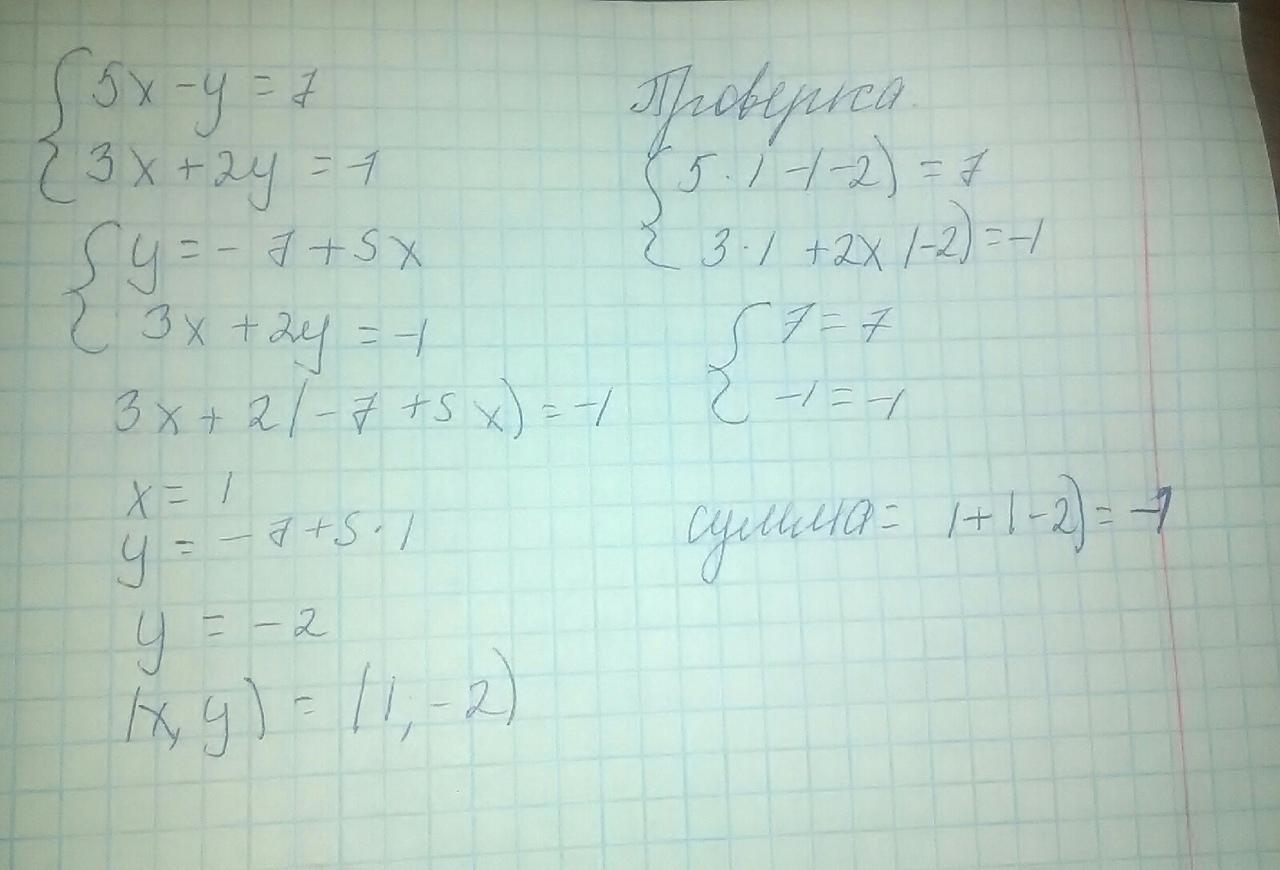 5x - y = 7
3x + 2y = -1
y = - 7 + 5x
3x + 2y = -1
3x + 2(-7 + 5x) = -1
x = 1
y = - 7 + 5 · 1
y = -2
(x, y) = (1, -2)
Проверка
5 · 1 - (-2) = 7
3 · 1 + 2x (-2) = -1
7 = 7
-1 = -1
сумма = 1 + (-2) = -1